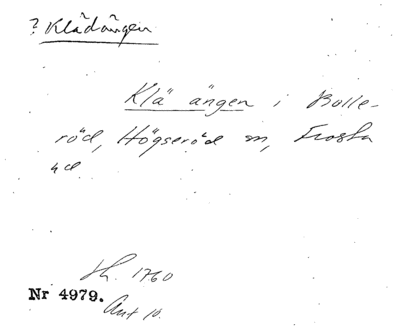 ? Klädängen
Klä ängen i Bolle-
röd, Högseröd sn, Frosta
hd.
1760
Nr 4979.
Akt 10.